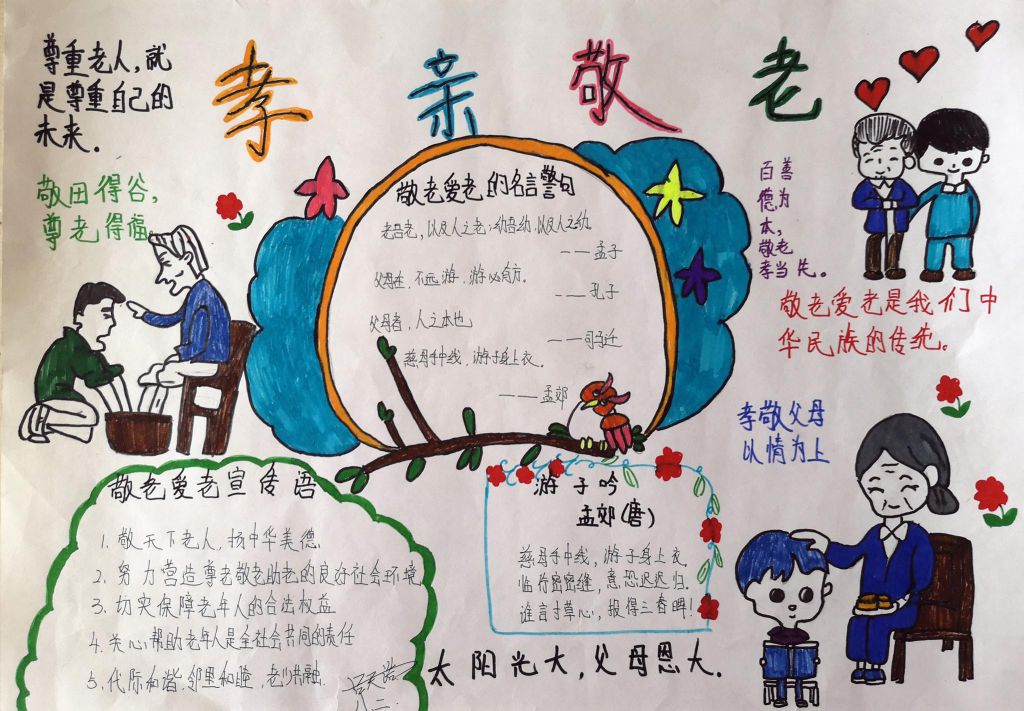 孝亲敬老
尊重老人,就
是尊重自己的
未来.
敬田得谷,
尊老得福.
敬老爱老的名言警句
老吾老,以及人之老;幼吾幼,以及人之幼.
——孟子
父母在,不远游,游必有方.
——孔子
父母者,人之本也
——司马迁
慈母手中线,游子身上衣.
——孟郊
百善
德为
本,
敬老
孝当先。
敬老爱老是我们中
华民族的传统。
孝敬父母
以情为上
敬老爱老宣传语
1.敬天下老人,扬中华美德
2.努力营造尊老敬老助老的良好社会环境
3.切实保障老年人的合法权益
4.关心帮助老年人是全社会共同的责任
5.代际和谐.邻里和睦,老少共融.
八二.
游子吟
孟郊(唐)
慈母手中线,游子身上衣
临行密密缝,意恐迟迟归.
谁言寸草心,报得三春晖!
太阳光大,父母恩大.